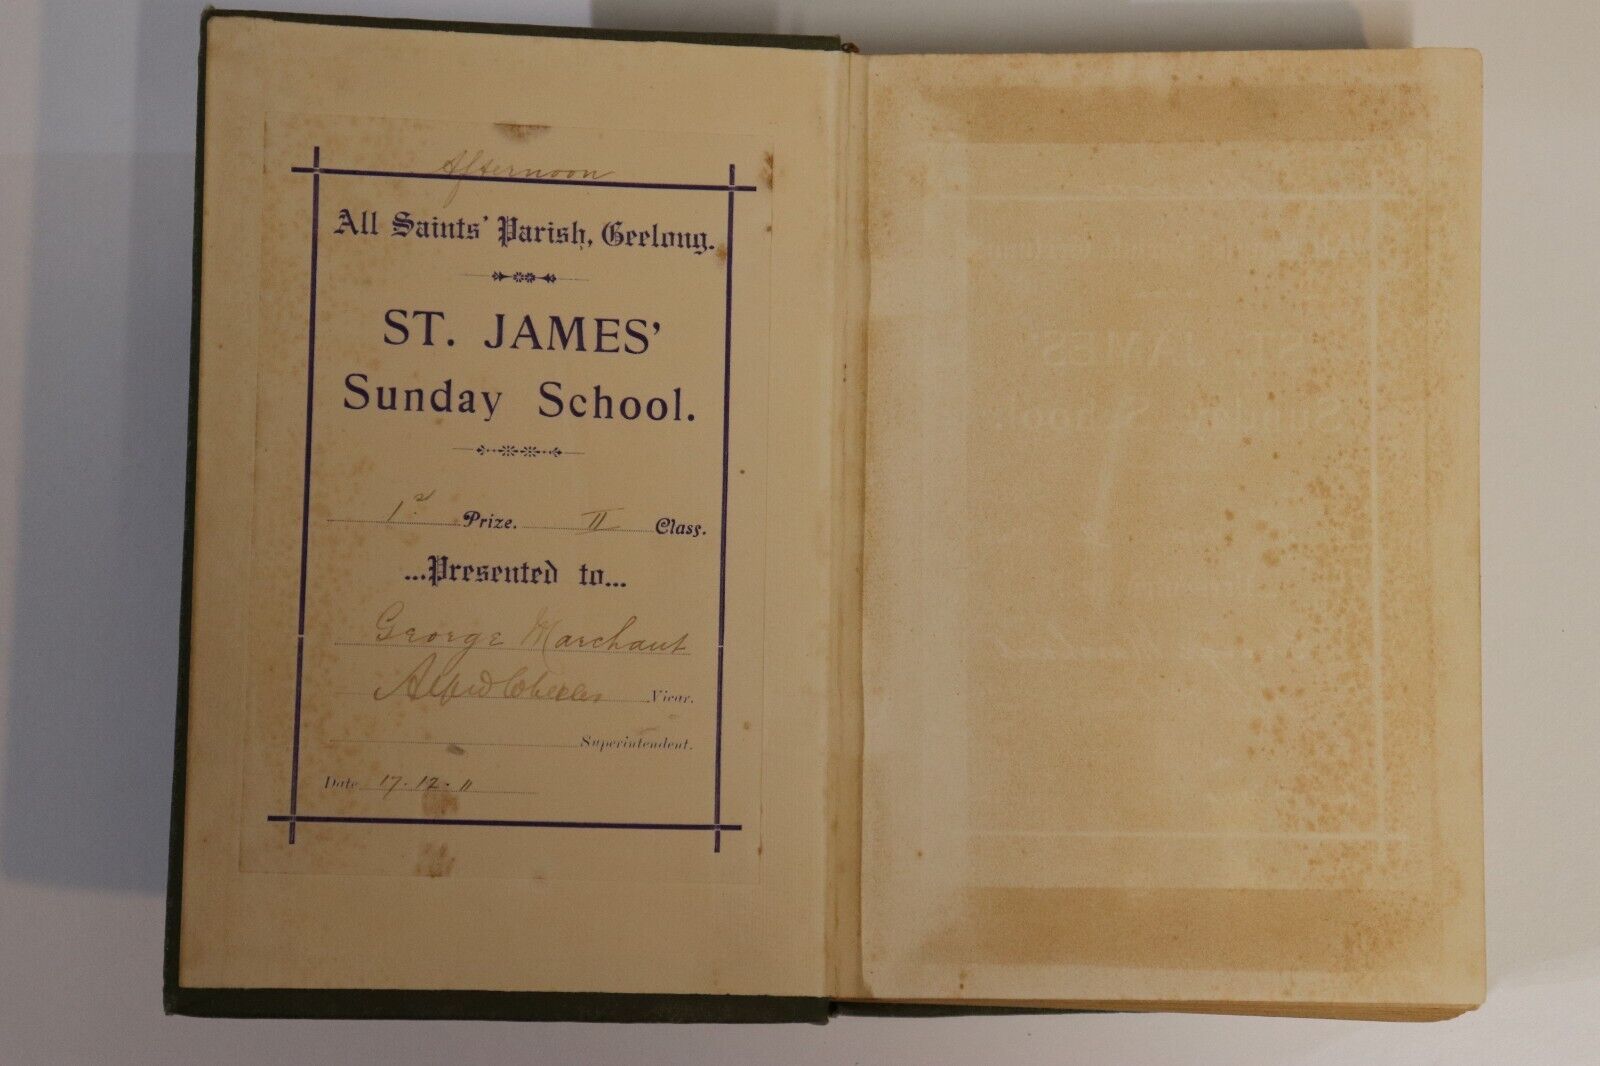 Afternoon
All Saints' Parish, Geelong.
ST. JAMES'
Sunday School.
1st Prize. II Class.
...Presented to...
George Marchant
Alfred Wheeler Vicar.
Superintendent.
Date 17.12.11